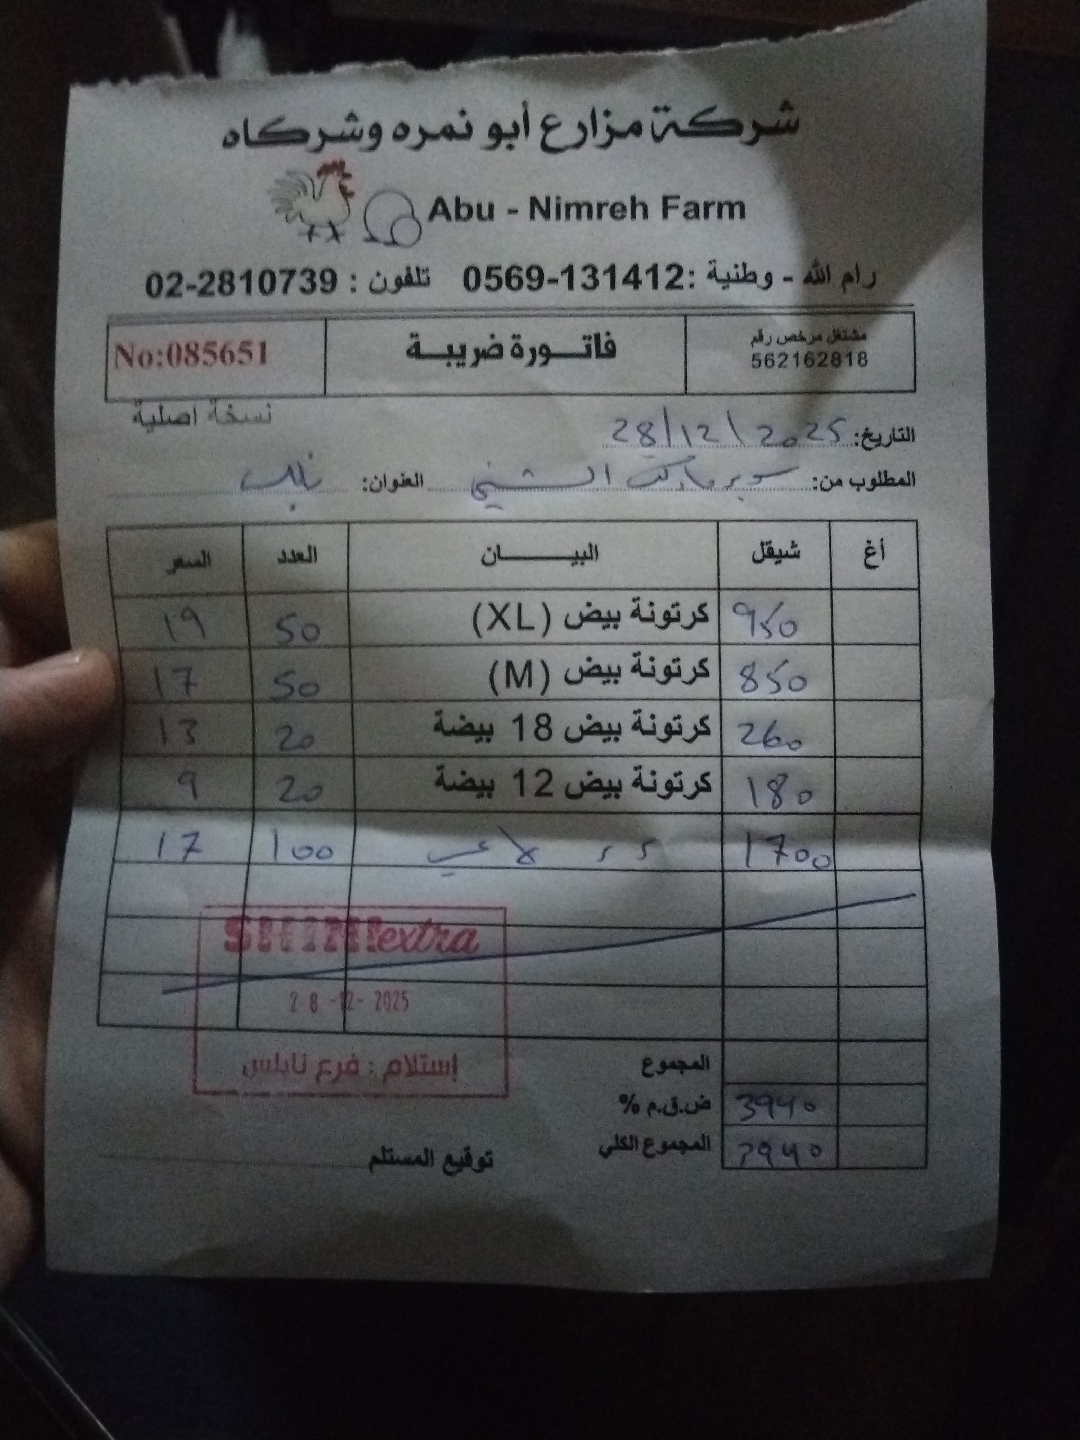 شركة مزارع أبو نمره وشركاه
Abu - Nimreh Farm
رام الله - وطنية :0569-131412 تلفون : 02-2810739
مشتغل مرخص رقم 562162818
فاتـــورة ضريبـة
No:085651
نسخة اصلية
التاريخ: 28/12/2025
المطلوب من: سوبر ماركت الشني العنوان: نابلس
أغ شيقل البيـــــان العدد السعر
950 كرتونة بيض (XL) 50 19
850 كرتونة بيض (M) 50 17
260 كرتونة بيض 18 بيضة 20 13
180 كرتونة بيض 12 بيضة 20 9
1700 100 17
SHINIextra
28-12-2025
إستلام : فرع نابلس
المجموع
ض.ق.م % 3940
المجموع الكلي 3940
توقيع المستلم